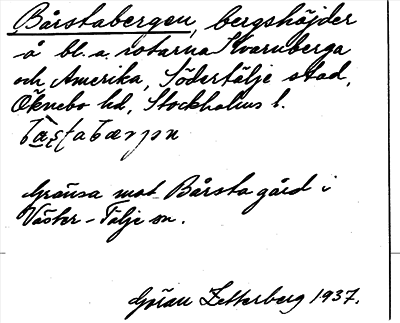 Bårstabergen, bergshöjder
å bl.a. rotarna Kvarnberga
och Amerika, Södertälje stad,
Öknebo hd, Stockholms l.
Gränsa mot Bårsta gård i
Väster-Tälje sn.
Göran Zetterberg 1937.